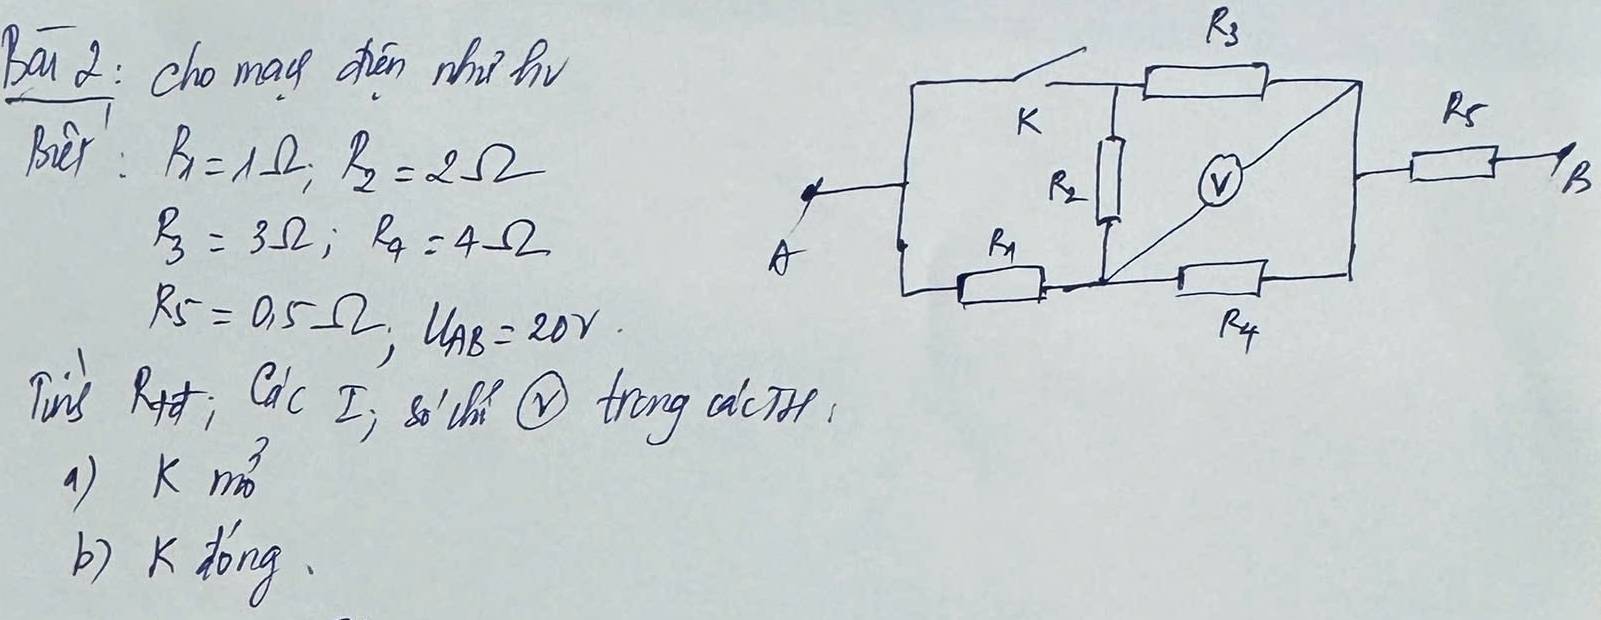 Bài 2: cho mạch điện như hv
Biết: R1 = 1Ω; R2 = 2Ω
R3 = 3Ω; R4 = 4Ω
R5 = 0,5Ω; UAB = 20V.
Tính Rtđ; Các I; số chỉ V trong các TH:
a) K mở
b) K đóng.
R3
K
R5
R2
V
B
A
R1
R4